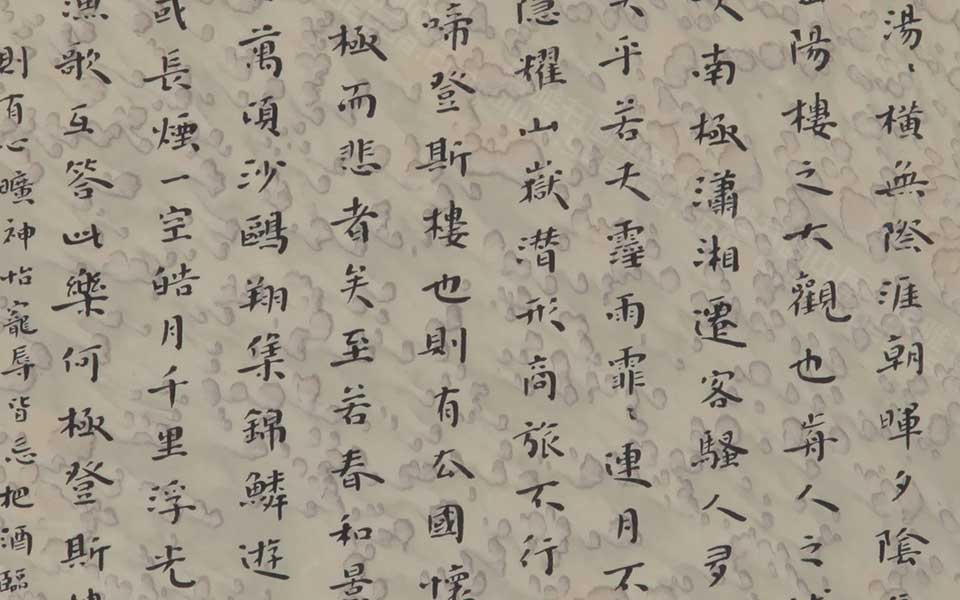 湯〻橫無際涯朝暉夕陰
陽樓之大觀也歬人之
南極瀟湘遷客騷人多
乎若夫霪雨霏〻連月不
隱耀山嶽潛形商旅不行
啼登斯樓也則有去國懷
極而悲者矣至若春和景
萬頃沙鷗翔集錦鱗遊
或長煙一空皓月千里浮光
漁歌互答此樂何極登斯
則有心曠神怡寵辱皆忘把酒臨